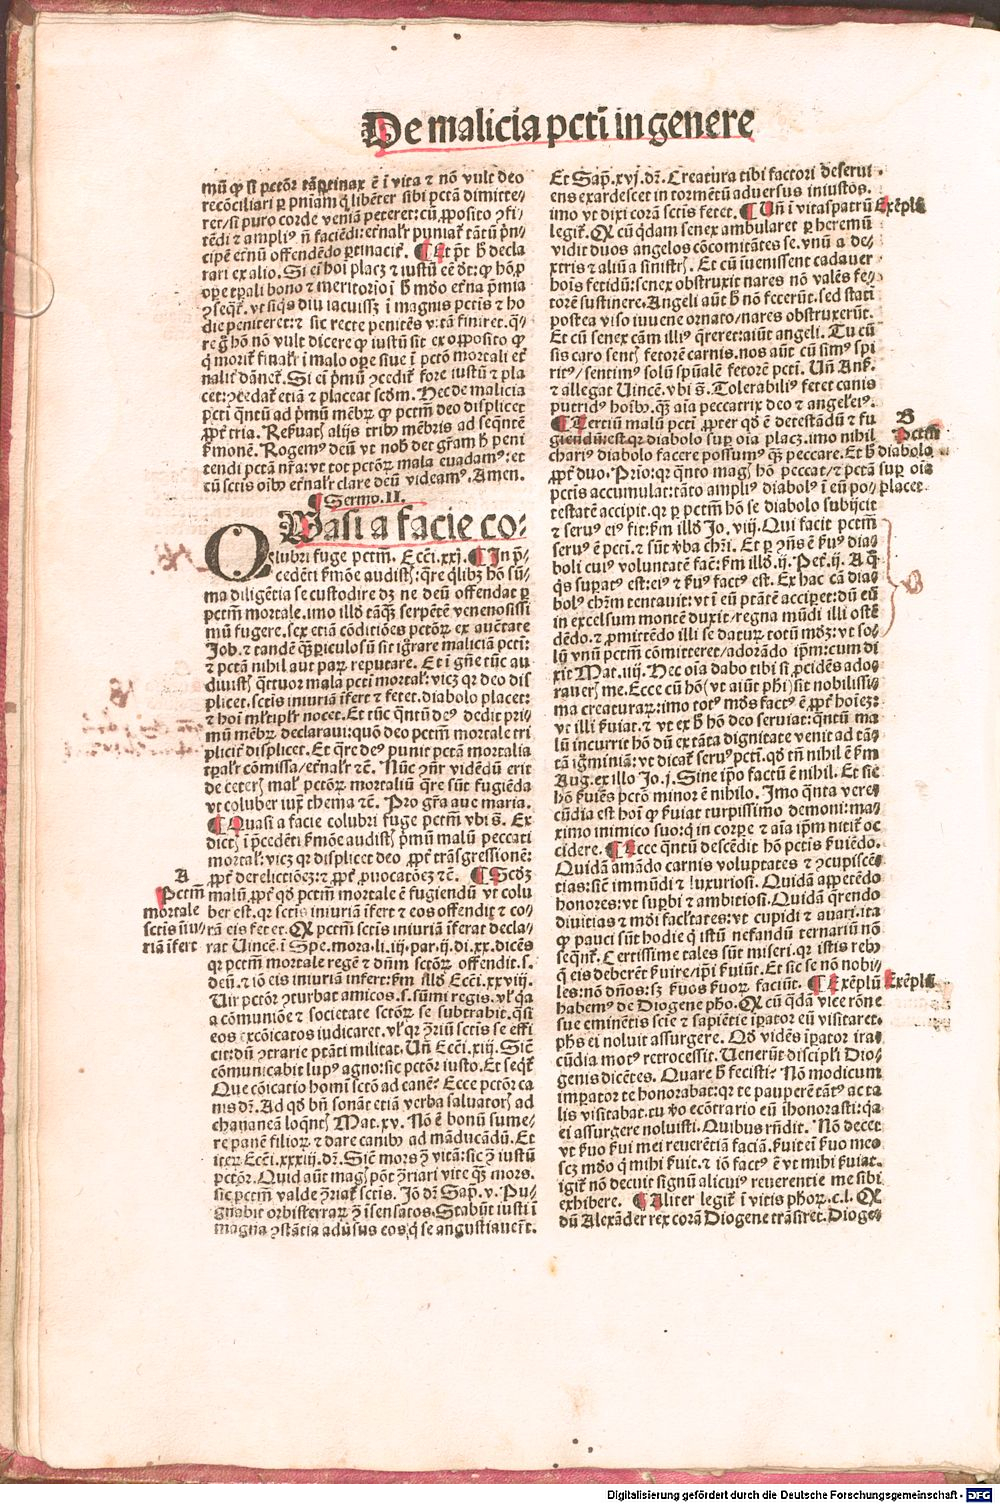 De malicia pctī in genere
mū ꝙ si pctōr tā ꝑtinax ē ī vita ⁊ nō vult deo
recōciliari ꝑ pniam q̄ libēter sibi pctā dimitte-
ret/si puro corde veniā peteret: cū ꝓposito ↄfi-
tēdi ⁊ ampliꝰ nō faciēdi: eternalr puniat tātū pn-
cipē eternū offendēdo ꝑtinacit. ¶ Et pt hͦ decla
rari ex alio. Si ei hoi placꝫ ⁊ iustū eē dr: ꝙ hō ꝓ
oꝑe tꝑali bono ⁊ meritorio ī hͦ mūdo eterna pmia
ↄseqr. vt siqs diu iacuissꝫ ī magnis pctis ⁊ ho
die peniteret: ⁊ sic recte penitēs vitā finiret. q-
re gͦ hō nō vult dicere ꝙ iustū sit ex opposito ꝙ
q morit finalr ī malo oꝑe siue ī pctō mortali eter
nalit dānet. Si ei pmū ↄcedit fore iustū ⁊ pla
cet: ↄcedat etiā ⁊ placeat scdm. Hec de malicia
pcti qntū ad pmū mēbꝝ ꝙ pctm deo displicet
ꝓpter tria. Reseruatis alijs tribꝰ mēbris ad seqntē
sermonē. Rogemꝰ deū vt nob det gram hͦ peni
tendi pctā nra: vt tot pctōꝝ mala euadamꝰ: et
cū sctis oībꝰ eternalr clare deū videamꝰ. Amen.
¶ Sermo. II.
Quasi a facie co-
lubri fuge pctm. Ecci. xxj. ¶ In p-
cedēti sermōe audistis: qre qlibet hō sum-
ma diligētia se custodire dꝫ ne deū offendat ꝑ
pctm mortale. imo illud tāqꝫ serpētē venenosissi
mū fugere. sex etiā cōditiōes pctōꝝ ex auctētate
Job. ⁊ tandē qꝫ ꝑiculosū sit ignrare maliciā pcti:
⁊ pctā nihil aut parꝝ reputare. Et ī gne tūc au
diuistis qttuor mala pcti mortal: vicꝫ qr deo dis
plicet. sctis iniuriā infert ⁊ fetet. diabolo placet:
⁊ hoi mltiplr nocet. Et tūc qntū deꝰ dedit pri-
mū mēbꝝ declaraui: quō deo pctm mortale tri
plicit displicet. Et qre deꝰ punit pctā mortalia
tꝑalr cōmissa/eternalr ⁊c. Nūc ↄnr vidēdū erit
de ceteris malis pctōꝝ mortaliū qre sūt fugiēda
vt coluber iuxta thema ⁊c. Pro gra aue maria.
¶ Quasi a facie colubri fuge pctm vbi s. Ex
dictis ī pcedēti sermōe audistis pmū malū peccati
mortal: vicꝫ qr displicet deo ꝓpter trāsgressionē:
ꝓpter derelictiōeꝫ: ⁊ ꝓpter ꝓuocatōeꝫ ⁊c. ¶ Scdꝫ
malū ꝓpter qd pctm mortale ē fugiendū vt colu
ber est. qr sctis iniuriā infert ⁊ eos offendit ⁊ co-
rā eis fetet. Qd pctm sctis iniuriā inferat decla-
rat Uincē. ī Spe. mora. li. iij. par. ij. di. xx. dicēs
qr pctm mortale regē ⁊ dnm sctōꝝ offendit. s.
deū. ⁊ iō eis iniuriā infert: sm illud Ecci. xxviij.
Uir pctōr ↄturbat amicos. s. sūmi regis. vel qa
a cōmuniōe ⁊ societate sctōꝝ se subtrahit. qsi
eos excōicatos iudicaret. vel qr ↄriū sctis se effi
cit: dū ↄtrarie ptāti militat. Un Ecci. xiij. Sic
cōmunicabit lupꝰ agno: sic pctōr iusto. Et seqt
Que cōicatio homi sctō ad canē? Ecce pctōr ca
nis dr. Ad qd bn sonāt etiā verba saluatoris ad
chananeā loqntis Mat. xv. Nō ē bonū sume-
re panē filioꝝ ⁊ dare canibꝰ ad māducādū. Et
iteꝝ Ecci. xxxiij. dr. Sic mors ↄ vitā: sic ↄ iustū
pctōr. Quid aut magis pōt ↄriari vite qꝫ mors.
sic pctm valde ↄriat sctis. Jō dr Sap. v. Pu-
gnabit orbisterraꝝ ↄ īsensatos. Stabunt iusti ī
magna ↄstātia aduersus eos q se angustiauert.
A
Pctm
mortale
sctis iniu-
riā ifert
Et Sap. xvj. dr. Creatura tibi factori deserui-
ens exardescet in tormētū aduersus iniustos.
imo vt dixi corā sctis fetet. ¶ Un ī vitaspatrū
legit. Qd cū qdam senex ambularet ꝑ heremū
vidit duos angelos cōcomitātes se. vnū a de-
xtris ⁊ aliū a sinistris. Et cū īuenissent cadauer
hois fetidū: senex obstruxit nares nō valēs fe-
torē sustinere. Angeli aut hͦ nō fecerūt. sed stati
postea viso iuuene ornato/nares obstruxerūt.
Et cū senex cām illiꝰ qreret: aiūt angeli. Tu cū
sis caro sentis fetorē carnis. nos aūt cū simꝰ spi
ritꝰ/sentimꝰ solū spūalē fetorē pcti. Un Ans.
⁊ allegat Uincē. vbi s. Tolerabiliꝰ fetet canis
putridꝰ hoībꝰ. qꝫ aia peccatrix deo ⁊ angelis.
¶ Tertiū malū pcti ꝓpter qd ē detestādū ⁊ fu
giendū est. qr diabolo suꝑ oia placꝫ. imo nihil
chariꝰ diabolo facere possumꝰ qꝫ peccare. Et hͦ
ꝓpter duo. Prio: qr qnto magis hō peccat/⁊ pctā
pctis accumulat: tāto ampliꝰ diabolꝰ ī eū po-
testatē accipit. qr ꝑ pctm hō se diabolo subijcit
⁊ seruꝰ eiꝰ fit: sm illud Jo. viij. Qui facit pctm
seruꝰ ē pcti. ⁊ sūt vba chri. Et ꝑ ↄns ē seruꝰ dia-
boli cuiꝰ voluntatē facit: sm illud. ij. Pet. ij. A q
qs suꝑatꝰ est: eiꝰ ⁊ seruꝰ factꝰ est. Ex hac cā dia-
bolꝰ chrm tentauit: vt ī eū ptātē acciꝑet: dū eū
in excelsum montē duxit/regna mūdi illi ostē
dēdo. ⁊ ꝓmittēdo illi se datuꝝ totū mūdū: vt so-
lū vnū pctm cōmitteret/adorādo ipm: cum di
xit Mat. iiij. Hec oia dabo tibi si ꝓcidēs ado-
raueris me. Ecce cū hō (vt aiūt phi) sit nobilissi-
ma creaturaꝝ: imo totꝰ mūdꝰ factꝰ ē ꝓpter hoīeꝫ:
vt illi seruiat. ⁊ vt ex hͦ hō deo seruiat: qntū ma
lū incurrit hō dū ex tāta dignitate venit ad tā-
tā ignominiā: vt dicat seruꝰ pcti. qd tn nihil ē sm
Aug. ex illo Jo. j. Sine ipo factū ē nihil. Et sic
hō seruiēs pctō minor ē nihilo. Imo qnta vere-
cūdia est hoi ꝙ seruiat turpissimo demoni: ma-
ximo inimico suo: q in corꝑe ⁊ aia ipm nitit oc
cidere. ¶ Ecce qntū descēdit hō pctis seruiēdo.
Quidā amādo carnis voluptates ⁊ ↄcupiscē-
tias: sic immūdi ⁊ luxuriosi. Quidā appetēdo
honores: vt suꝑbi ⁊ ambitiosi. Quidā qrendo
diuitias ⁊ mūdi facltates: vt cupidi ⁊ auari. ita
ꝙ pauci sūt hodie q istū nefandū ternariū nō
seqnt. Certissime tales sūt miseri. qr istis rebꝰ
q eis deberēt seruire/ipi seruiūt. Et sic se nō nobi-
les: nō dnos: sꝫ seruos seruoꝝ faciūt. ¶ Exēplū
habemꝰ de Diogene pho. Qd cū qdā vice rōne
sue eminētis scie ⁊ sapiētie īꝑator eū visitaret.
phs ei noluit assurgere. Qd vidēs īꝑator ira-
cūdia motꝰ retrocessit. Uenerūt discipli Dio-
genis dicētes. Quare hͦ fecisti? Nō modicum
imꝑator te honorabat: qr te pauperē tātꝰ ac ta
lis visitabat. tu vo ecōtrario eū ihonorasti: qa
ei assurgere noluisti. Quibus rndit. Nō decet
vt seruo serui mei reuerētiā faciā. seruit ei seruo meo
scꝫ mūdo q mihi seruit. ⁊ iō factꝰ ē vt mihi seruiat.
igit nō decuit signū alicuiꝰ reuerentie me sibi
exhibere. ¶ Aliter legit ī vitis phoꝝ. c. l. Qd
dū Alexāder rex corā Diogene trāsiret. Dioge-
Exēplū
B
Pctm
diabolo
suꝑ oia
placet
Exēplū
Digitalisierung gefördert durch die Deutsche Forschungsgemeinschaft - DFG